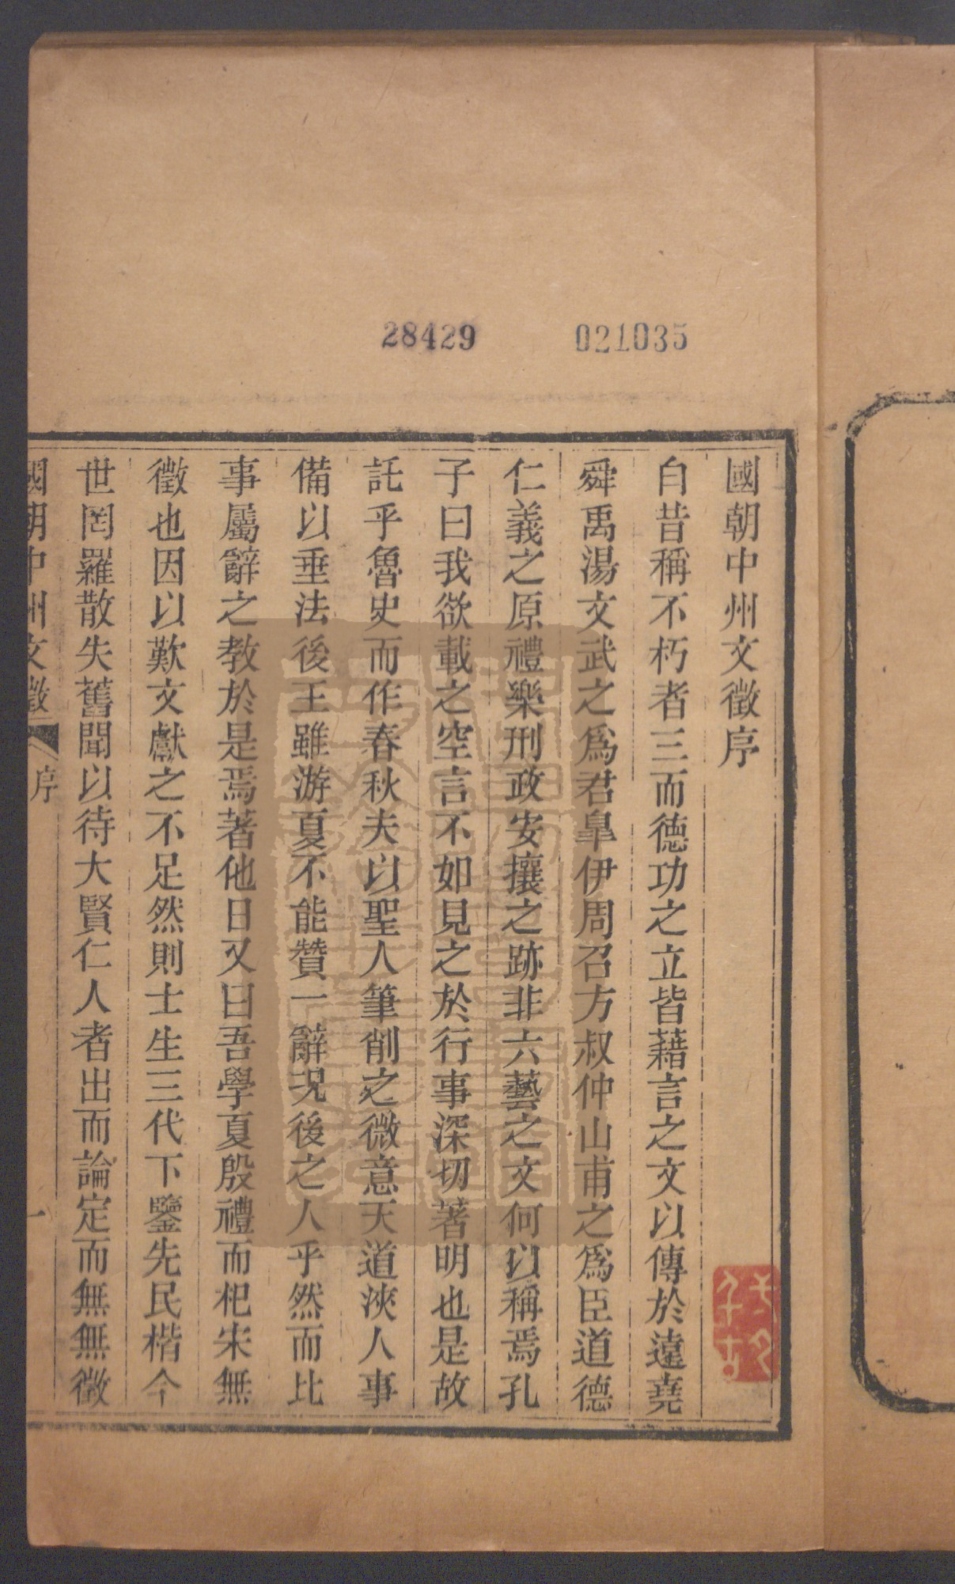 28429
021035
國朝中州文徵序
自昔稱不朽者三而德功之立皆藉言之文以傳於遠堯
舜禹湯文武之爲君皐伊周召方叔仲山甫之爲臣道德
仁義之原禮樂刑政安攘之跡非六藝之文何以稱焉孔
子曰我欲載之空言不如見之於行事深切著明也是故
託乎魯史而作春秋夫以聖人筆削之微意天道浹人事
備以垂法後王雖游夏不能贊一辭況後之人乎然而比
事屬辭之教於是焉著他日又曰吾學夏殷禮而杞宋無
徵也因以歎文獻之不足然則士生三代下鑒先民楷今
世罔羅散失舊聞以待大賢仁人者出而論定而無無徵
國朝中州文徵
序
一